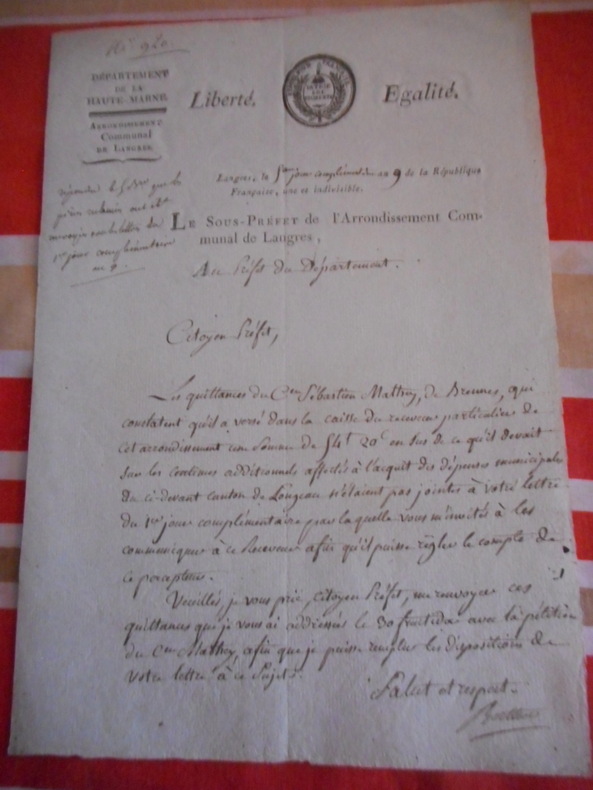 DÉPARTEMENT
DE LA
HAUTE-MARNE.
ARRONDISSEMENT
Communal
DE LANGRES.
Liberté.
Egalité.
Langres, le 5me jour complémentaire an 9 de la République
Française, une et indivisible.
1er jour complémentaire
an 9
LE SOUS-PRÉFET de l'Arrondissement Com-
munal de Langres,
Au Préfet du Département.
Citoyen Préfet,
Les quittances du Cen Sébastien Mathey, de Brennes, qui
constatent qu'il a versé dans la caisse du receveur particulier de
cet arrondissement une somme de 54f 20c en sus de ce qu'il devait
sur les centimes additionnels affectés à l'acquit des dépenses municipales
du ci-devant canton de Longeau n'étaient pas jointes à votre lettre
du 1er jour complémentaire par laquelle vous m'invités à les
communiquer à ce Receveur afin qu'il puisse régler le compte de
ce percepteur.
Veuillés je vous prie, Citoyen Préfet, me renvoyer ces
quittances que je vous ai addressés le 30 fructidor avec la pétition
du Cen Mathey afin que je puisse remplir les dispositions de
votre lettre à ce sujet.
Salut et respect.